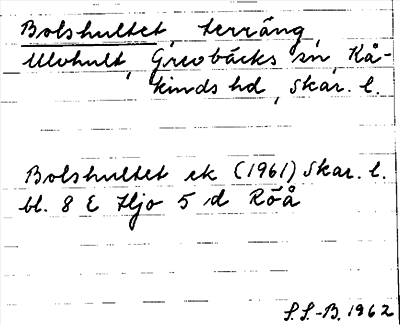 Bolshultet, terräng,
Ulvhult, Grevbäcks sn, Kå-
kinds hd, Skar. l.
Bolshultet ek (1961) Skar. l.
bl. 8 E Hjo 5 d Röå
S.S.-B. 1962